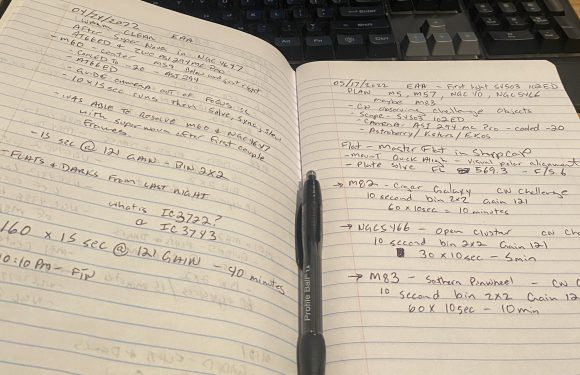 04/24/2022 EAA
Warm, CLEAN
After Super Nova in NGC 4647
AT66ED & ZWO ASI294MC Pro
- M60 -
COOLED TO -20 ASI 294
- AT66ED -
- GUIDE CAMERA OUT OF FOCUS
10 x 15 sec runs then solve, sync, then
- WAS ABLE TO RESOLVE M60 & NGC 4647
with super nova after first couple
frames.
- 15 sec @ 121 GAIN - BIN 2x2
- FLATS & DARKS FROM LAST NIGHT
what is IC3722?
& IC3743
160 x 15 sec @ 121 GAIN - 40 minutes
10:10 PM - FIN
05/17/2022 EAA - First light SV503 102ED
PLAN M5, M57, NGC 40, NGC5466
Maybe M83
- CN observing challenge objects
- Scope - SV503 102ED
- CAMERA - ASI 294 MC Pro - cooled -20
- Astroberry / Kstars / EKOS
Flat - Master Flat in SharpCap
- Mount Quick Align - visual polar alignment
- Plate Solve FL 569.3 - F/5.6
→ M82 - Cigar Galaxy CN Challenge
10 second bin 2x2 Gain 121
60 x 10sec = 10 minutes
→ NGC5466 - Open Cluster CN Ch
10 second bin 2x2 Gain 121
30 x 10sec - 5min
→ M83 - Sothern Pinwheel - CN C
10 second bin 2x2 Gain 12
60 x 10sec - 10min
Profile Ball